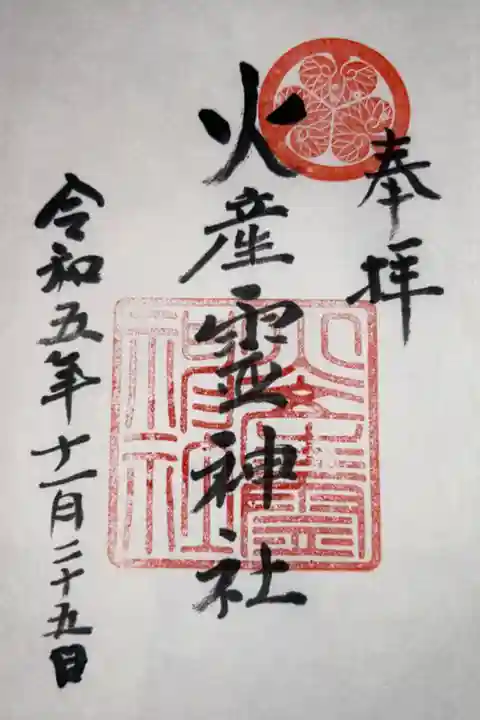 奉拝
火産霊神社
令和五年十一月二十五日
火産霊神社